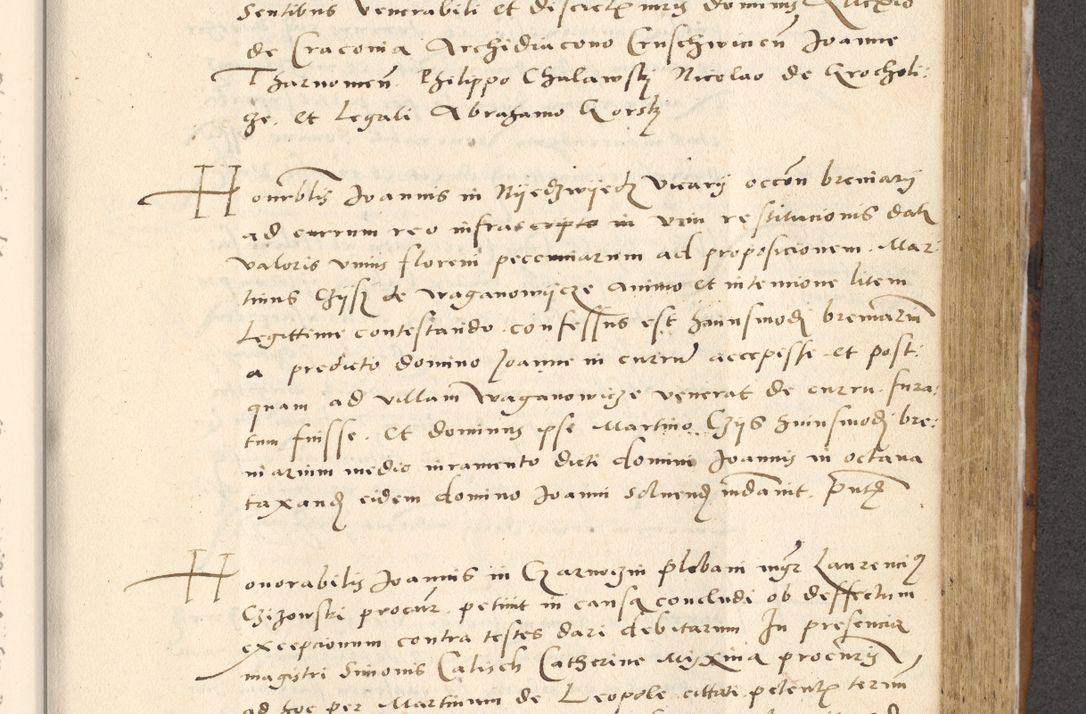 sentibus venerabili et discretis viris dominis Alexio
de Craconia Archidiacono Cruschwicen Joanne
Tharnowen. Philippo Chulawskj Nicolao de Krocholi:
cze. et Legali Abrahamo Gorskj
Honrblis Joannis in Nyedzwyedz vicarij occon breviarij
ad currum reo infrascripto in vim restitucionis dati
valoris vnius floreni pecuniarum ad proposicionem. Mar
tinus Czijsz de waganowijcze animo et intencione litem
Legittime contestando. confessus est huiusmodj breviarium
a predicto domino Joanne in curru accepisse et post:
quam ad villam waganowicze venerat de curru. fura:
tum fuisse. et dominus ipse Martino Czijs huiusmodj bre:
viarium medio iuramento dicti domini Joannis in octava
taxandum eidem domino Joanni solvendum mandavit. Pntibus
Honorabilis Joannis in Czarnoczin plebani mgr Laurencius
Czizowski procur. petiuit in causa concludi ob deffectum
exceptionum contra testes dari debitarum In presencia
magistri Simonis Calisch Catherine procuris
ad hoc per Martinum de Leopole cittati petentis terim